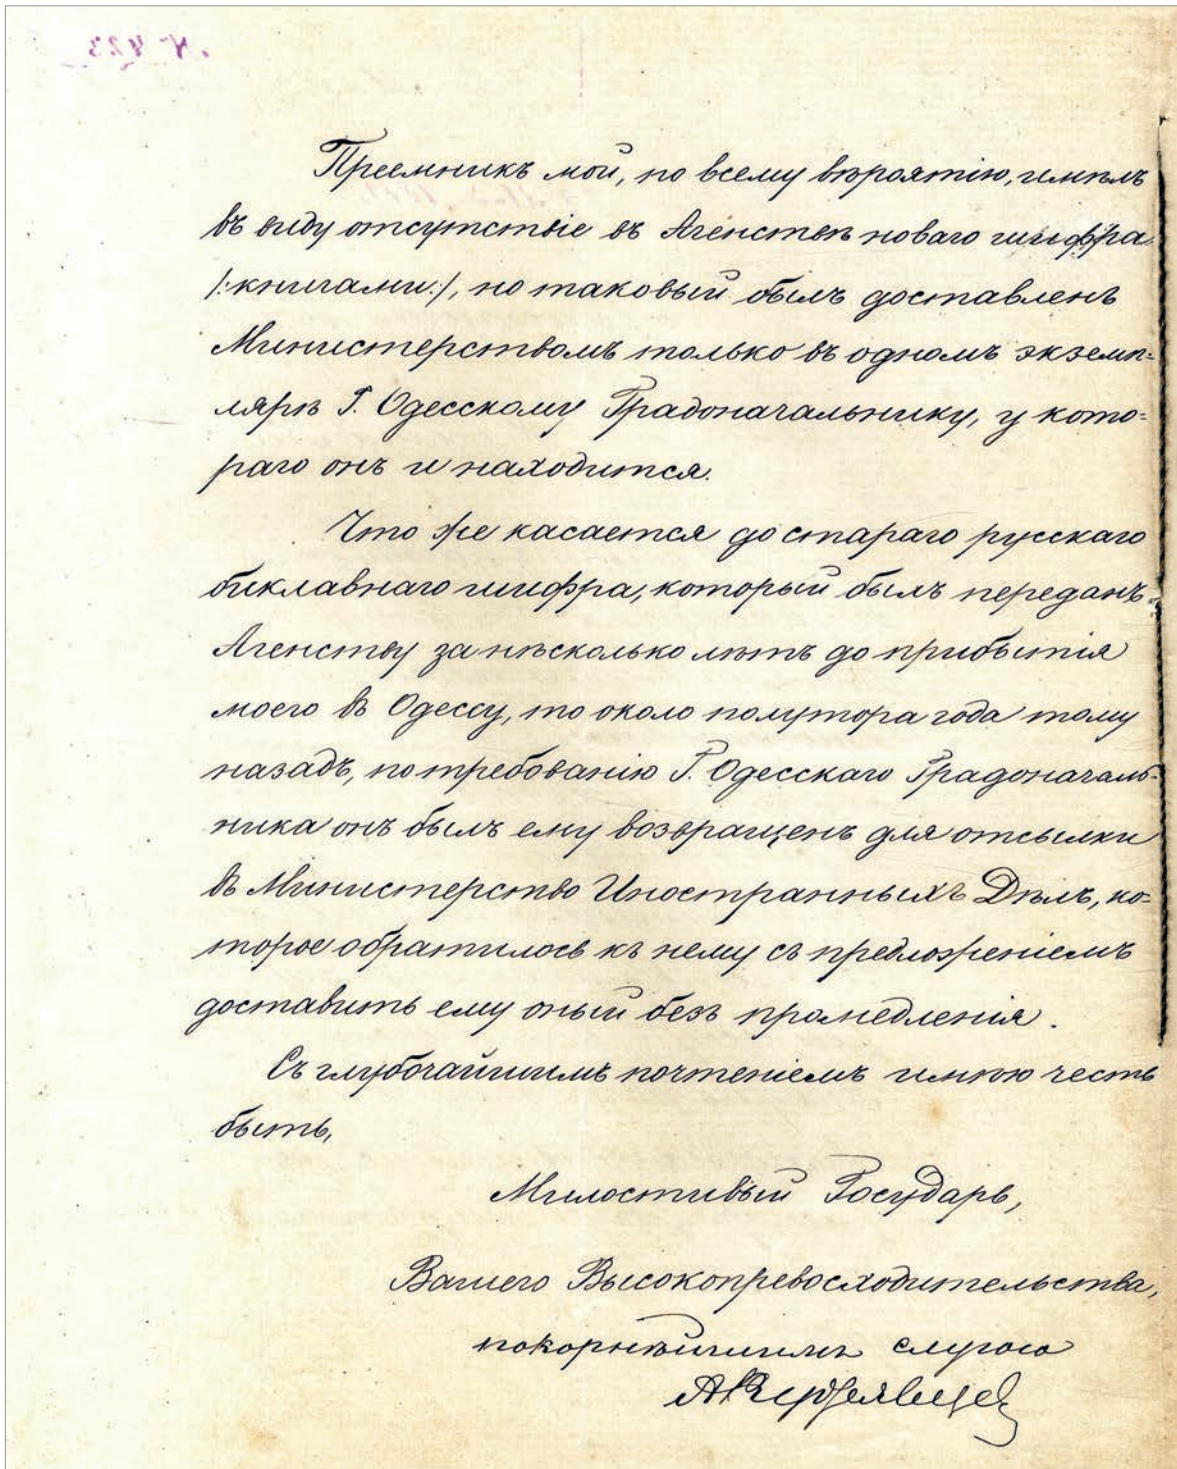 № 423
Преемникъ мой, по всему вѣроятію, имѣлъ
въ виду отсутствіе въ Агенствѣ новаго шифра
/:книгами:/, но таковый былъ доставленъ
Министерствомъ только въ одномъ экземп=
лярѣ Г. Одесскому Градоначальнику, у кото=
раго онъ и находится.
Что же касается до стараго русскаго
биклавнаго шифра, который былъ переданъ
Агенству за нѣсколько лѣтъ до прибытія
моего въ Одессу, то около полутора года тому
назадъ, по требованію Г. Одесскаго Градоначаль=
ника онъ былъ ему возвращенъ для отсылки
въ Министерство Иностранныхъ Дѣлъ, ко=
торое обратилось къ нему съ предложеніемъ
доставить ему оный безъ промедленія.
Съ глубочайшимъ почтеніемъ имѣю честь
быть,
Милостивый Государь,
Вашего Высокопревосходительства,
покорнѣйшимъ слугою